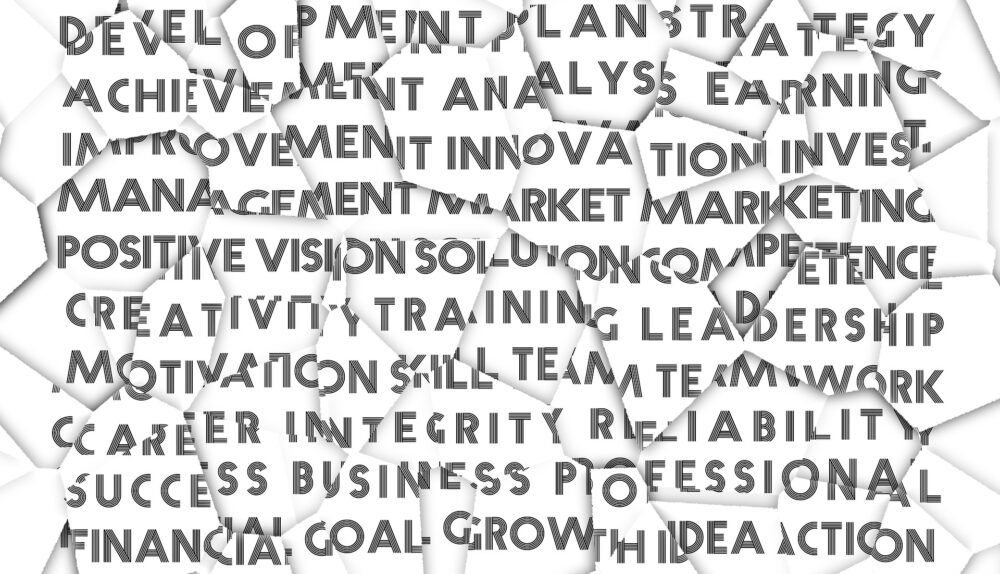 DEVELOPMENT PLAN STRATEGY
ACHIEVEMENT ANALYSS EARNING
IMPROVEMENT INNOVATION INVEST
MANAGEMENT MARKET MARKETING
POSITIVE VISION SOLUTION COMPETENCE
CREATIVITY TRAINING LEADERSHIP
MOTIVATION SKILL TEAM TEAMWORK
CAREER INTEGRITY RELIABILITY
SUCCESS BUSINESS PROFESSIONAL
FINANCIAL GOAL GROWTH IDEA ACTION